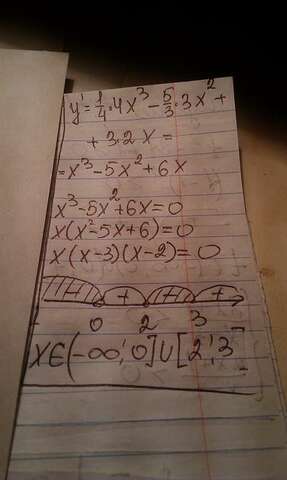 y' = 1/4·4x³ - 5/3·3x² +
+ 3·2x =
= x³ - 5x² + 6x
x³ - 5x² + 6x = 0
x(x² - 5x + 6) = 0
x(x-3)(x-2) = 0
- + - +
0 2 3
x∈(-∞; 0] ∪ [2; 3]